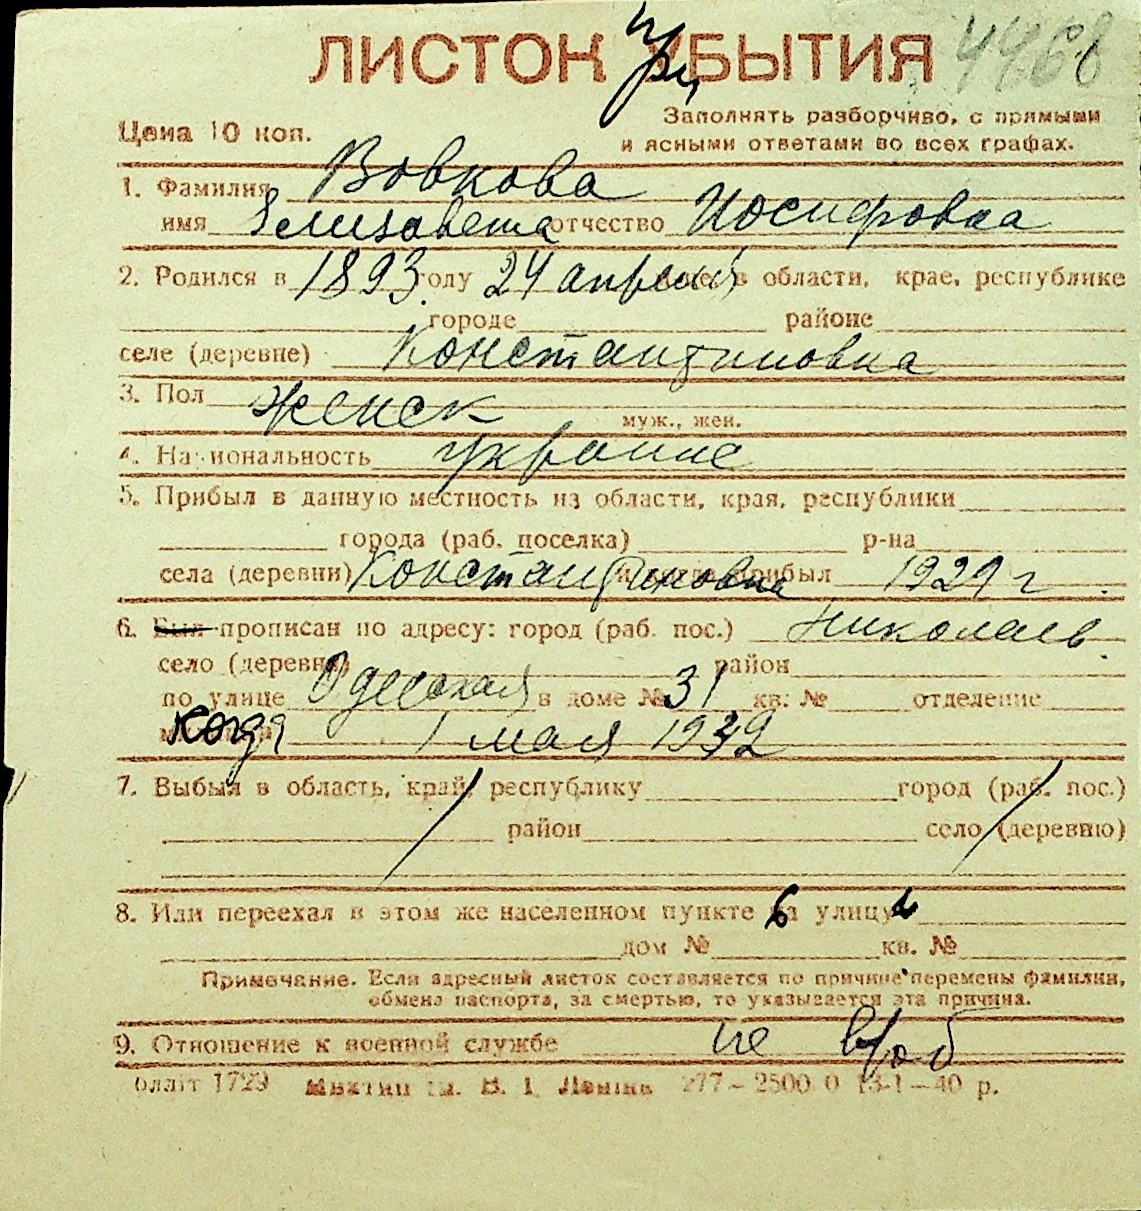 ЛИСТОК при БЫТИЯ 4468
Цена 10 коп.
Заполнять разборчиво, с прямыми
и ясными ответами во всех графах.
1. Фамилия Вовкова
имя Елизавета отчество Иосифовна
2. Родился в 1893 году 24 апреля в области, крае, республике
городе районе
селе (деревне) Константиновка
3. Пол женск
муж., жен.
4. Национальность украине
5. Прибыл в данную местность из области, края, республики
города (раб. поселка) р-на
села (деревни) Константиновка и когда прибыл 1929 г.
6. Был прописан по адресу: город (раб. пос.) Николаев.
село (деревня) район
по улице Одесская в доме № 31 кв. № отделение
когда 1 мая 1942
7. Выбыл в область, край, республику город (раб. пос.)
район село (деревню)
8. Или переехал в этом же населенном пункте на улицу
дом № кв. №
Примечание. Если адресный листок составляется по причине перемены фамилии,
обмена паспорта, за смертью, то указывается эта причина.
9. Отношение к военной службе не
1729 В. І. Леніна 277—2500.0 13-1—40 р.